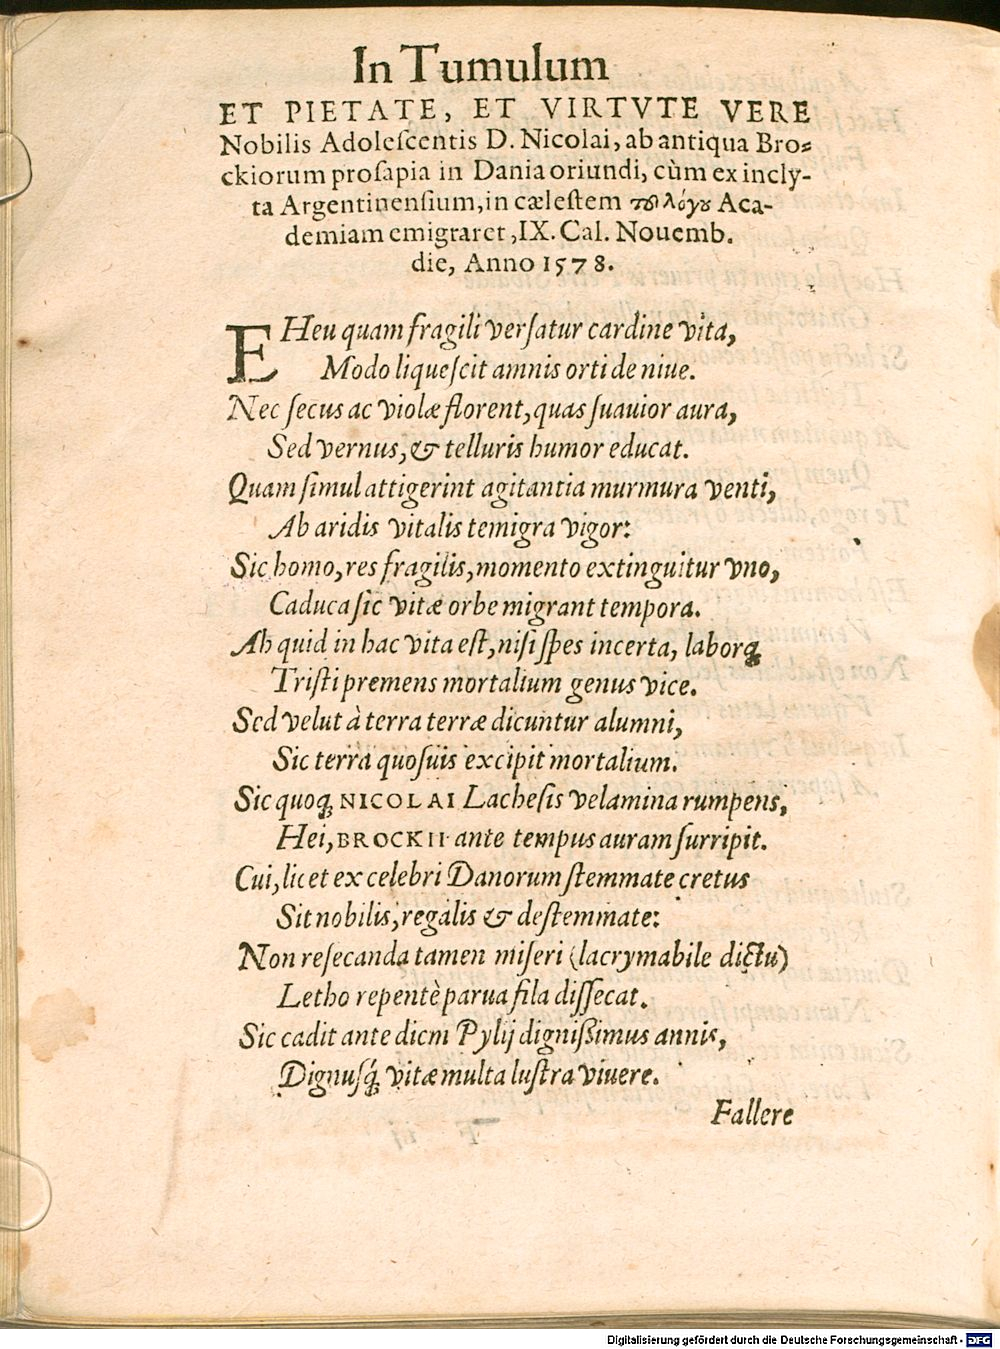 In Tumulum
ET PIETATE, ET VIRTVTE VERE
Nobilis Adoleſcentis D. Nicolai, ab antiqua Bro⸗
ckiorum proſapia in Dania oriundi, cùm ex incly-
ta Argentinenſium, in cæleſtem τοῦ λόγου Aca-
demiam emigraret, IX. Cal. Nouemb.
die, Anno 1578.
EHeu quam fragili verſatur cardine vita,
Modo liqueſcit amnis orti de niue.
Nec ſecus ac violæ florent, quas ſuauior aura,
Sed vernus, & telluris humor educat.
Quam ſimul attigerint agitantia murmura venti,
Ab aridis vitalis temigra vigor:
Sic homo, res fragilis, momento extinguitur vno,
Caduca ſic vitæ orbe migrant tempora.
Ah quid in hac vita eſt, niſi ſpes incerta, laborq́;
Triſti premens mortalium genus vice.
Sed velut à terra terræ dicuntur alumni,
Sic terra quoſuis excipit mortalium.
Sic quoq; NICOLAI Lacheſis velamina rumpens,
Hei, BROCKII ante tempus auram ſurripit.
Cui, licet ex celebri Danorum ſtemmate cretus
Sit nobilis, regalis & deſtemmate:
Non reſecanda tamen miſeri (lacrymabile dictu)
Letho repentè parua fila diſſecat.
Sic cadit ante diem Pylij digniſsimus annis,
Dignuſq́; vitæ multa luſtra viuere.
Fallere
Digitalisierung gefördert durch die Deutsche Forschungsgemeinschaft - DFG